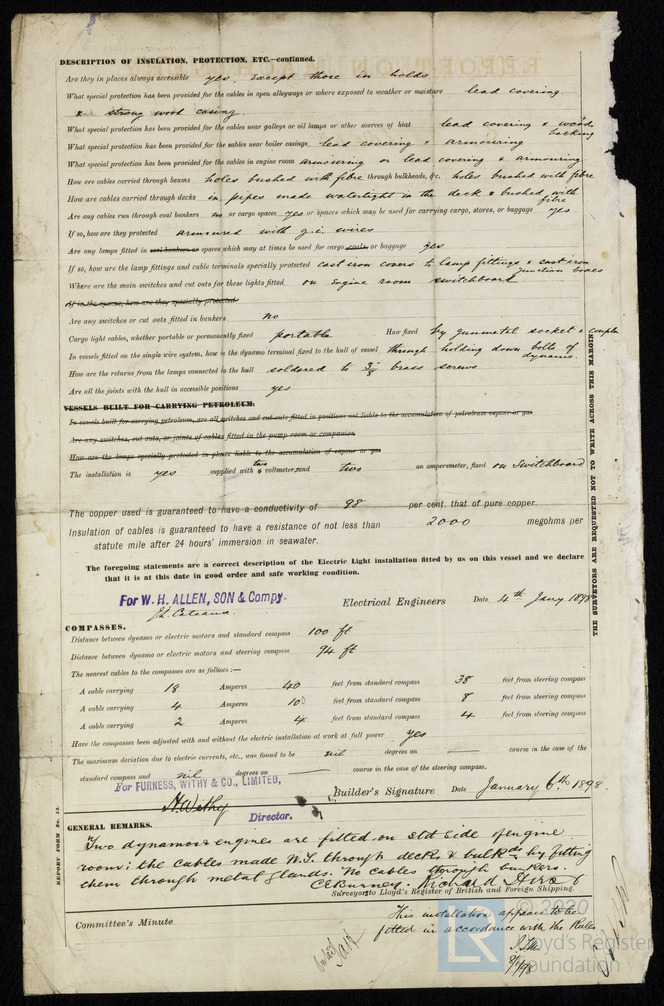 DESCRIPTION OF INSULATION, PROTECTION, ETC.—continued.
Are they in places always accessible yes, except those in holds.
What special protection has been provided for the cables in open alleyways or where exposed to weather or moisture lead covering
& strong wood casing
What special protection has been provided for the cables near galleys or oil lamps or other sources of heat lead covering & wood backing
What special protection has been provided for the cables near boiler casings lead covering & armouring
What special protection has been provided for the cables in engine room armouring or lead covering & armouring
How are cables carried through beams holes bushed with fibre through bulkheads, &c. holes bushed with fibre
How are cables carried through decks in pipes made watertight in the deck & bushed with fibre
Are any cables run through coal bunkers no or cargo spaces yes or spaces which may be used for carrying cargo, stores, or baggage yes
If so, how are they protected armoured with g.i. wires
Are any lamps fitted in coal bunkers or spaces which may at times be used for cargo, coals, or baggage yes
If so, how are the lamp fittings and cable terminals specially protected cast iron covers to lamp fittings & cast iron junction boxes
Where are the main switches and cut outs for these lights fitted on Engine room switchboard
If in the spaces, how are they specially protected
Are any switches or cut outs fitted in bunkers no
Cargo light cables, whether portable or permanently fixed portable How fixed by gunmetal socket &
In vessels fitted on the single wire system, how is the dynamo terminal fixed to the hull of vessel through holding down bolts of dynamo.
How are the returns from the lamps connected to the hull soldered to 3/8" brass screws
Are all the joints with the hull in accessible positions yes
VESSELS BUILT FOR CARRYING PETROLEUM.
In vessels built for carrying petroleum, are all switches and cut-outs fitted in positions not liable to the accumulation of petroleum vapour or gas
Are any switches, cut outs, or joints of cables fitted in the pump room or companion
How are the lamps specially protected in places liable to the accumulation of vapour or gas
The installation is yes supplied with a two voltmeter and two an amperemeter, fixed on Switchboard
The copper used is guaranteed to have a conductivity of 98 per cent. that of pure copper.
Insulation of cables is guaranteed to have a resistance of not less than 2000 megohms per
statute mile after 24 hours' immersion in seawater.
The foregoing statements are a correct description of the Electric Light installation fitted by us on this vessel and we declare
that it is at this date in good order and safe working condition.
For W. H. ALLEN, SON & Compy.
Electrical Engineers Date 4th Jany 1898
COMPASSES.
Distance between dynamo or electric motors and standard compass 100 ft
Distance between dynamo or electric motors and steering compass 94 ft
The nearest cables to the compasses are as follows:—
A cable carrying 18 Amperes 40 feet from standard compass 38 feet from steering compass
A cable carrying 4 Amperes 10 feet from standard compass 8 feet from steering compass
A cable carrying 2 Amperes 4 feet from standard compass 4 feet from steering compass
Have the compasses been adjusted with and without the electric installation at work at full power yes
The maximum deviation due to electric currents, etc., was found to be nil degrees on — course in the case of the
standard compass and nil degrees on — course in the case of the steering compass.
For FURNESS, WITHY & CO., LIMITED,
H. Withy Director. Builder's Signature Date January 6th 1898.
GENERAL REMARKS.
Two dynamos & engines are fitted on Std side of engine
room: the cables made W.T. through decks & bulkds by fitting
them through metal glands. No cables through bunkers.
C. E. Burney. Michael
Surveyors to Lloyd's Register of British and Foreign Shipping.
Committee's Minute
This installation appears to be
fitted in accordance with the Rules
REPORT FORM No. 13.
THE SURVEYORS ARE REQUESTED NOT TO WRITE ACROSS THIS MARGIN.
LR © 2020
Lloyd's Register
Foundation